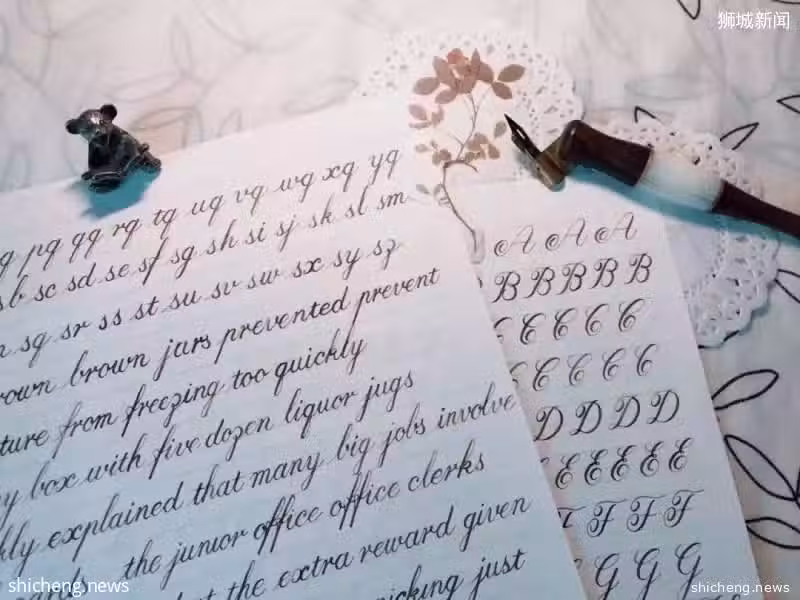 狮城新闻
g pg qg rg tg ug vg wg xg yg
sb sc sd se sf sg sh si sj sk sl sm
sq sr ss st su sv sw sx sy sz
brown jars prevented prevent
from freezing too quickly
box with five dozen liquor jugs
explained that many big jobs involve
the junior office office clerks
the extra reward given
just
A A A
B B B B B
C C C C
C C C C
D D D D
E E E E E
F F F
G G G
shicheng.news
shicheng.news